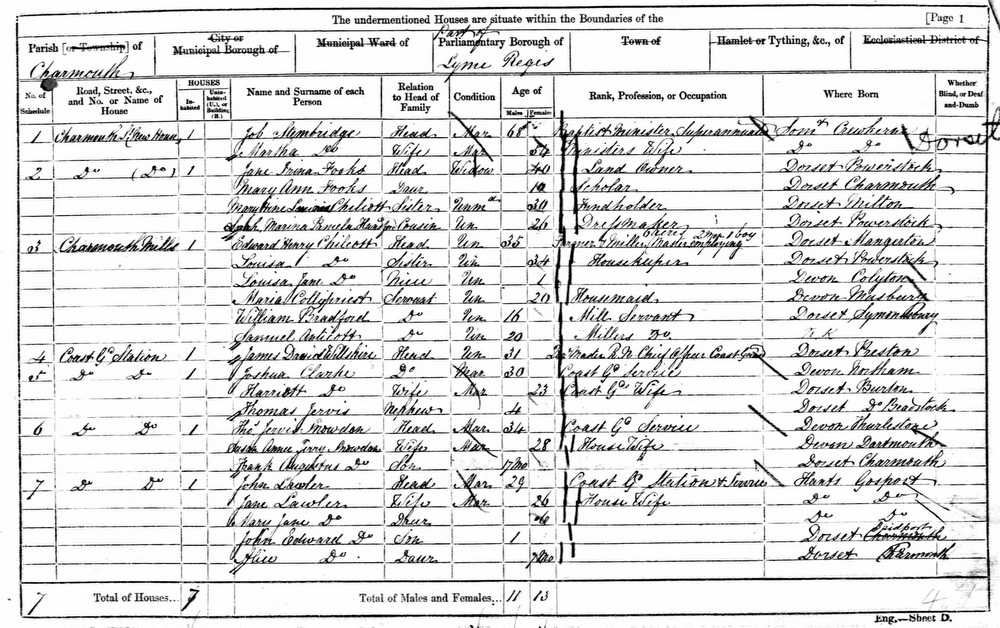 The undermentioned Houses are situate within the Boundaries of the [Page 1
Parish [or Township] of City or Municipal Borough of Municipal Ward of Part of Parliamentary Borough of Town of Hamlet or Tything, &c., of Ecclesiastical District of
Charmouth Lyme Regis
No. of Schedule Road, Street, &c., and No. or Name of House HOUSES Inhabited Uninhabited (U.), or Building (B.) Name and Surname of each Person Relation to Head of Family Condition Age of Males Females Rank, Profession, or Occupation Where Born Whether Blind, or Deaf-and-Dumb
1 Charmouth 1 Job Stembridge Head Mar 68 Baptist Minister Superannuated Somt Crewkerne
Martha Do Wife Mar Wife Do Do Dorset
2 Do (Do) 1 Jane Fooks Head Widow 40 Land Owner Dorset Powerstock
Mary Ann Fooks Daur 10 Scholar Dorset Charmouth
Chilcott Sister Unmd 30 Fundholder Dorset Milton
Marina Cousin Un 26 Dressmaker Dorset Powerstock
3 Charmouth Mills 1 Edward Henry Chilcott Head Un 35 Farmer & Miller Master employing 2 men 1 boy Dorset Mangerton
Louisa Do Sister Un 34 Housekeeper Dorset Powerstock
Louisa Jane Do Niece Un 1 Devon Colyton
Maria Collypriest Servant Un 20 Housemaid Devon Musbury
William Bradford Do Un 16 Mill Servant Dorset Symondsbury
Samuel Do Un 20 Millers Do N. K
4 Coast Gd Station 1 James David Willshire Head Un 31 R N Chief Officer Coast Guard Dorset Preston
5 Do Do 1 Joshua Clarke Do Mar 30 Coast Gd Service Devon Northam
Harriott Do Wife Mar 23 Coast Gds Wife Dorset Burton
Thomas Jervis Nephew 4 Dorset Do Bradstock
6 Do Do 1 Thos Jervis Mowdon Head Mar 34 Coast Gd Service Devon Thurlestone
Annie Mowdon Wife Mar 28 House Wife Devon Dartmouth
Frank Augustus Do Son 17 Mo Dorset Charmouth
7 Do Do 1 John Lawler Head Mar 29 Coast Gd Station & Service Hants Gosport
Jane Lawler Wife Mar 26 House Wife Do Do
Mary Jane Do Daur 6 Do Do
John Edward Do Son 1 Dorset Charmouth Bridport
Alice Do Daur 7 Mo Dorset Charmouth
7 Total of Houses... 7 Total of Males and Females... 11 13 4
Eng.—Sheet D.